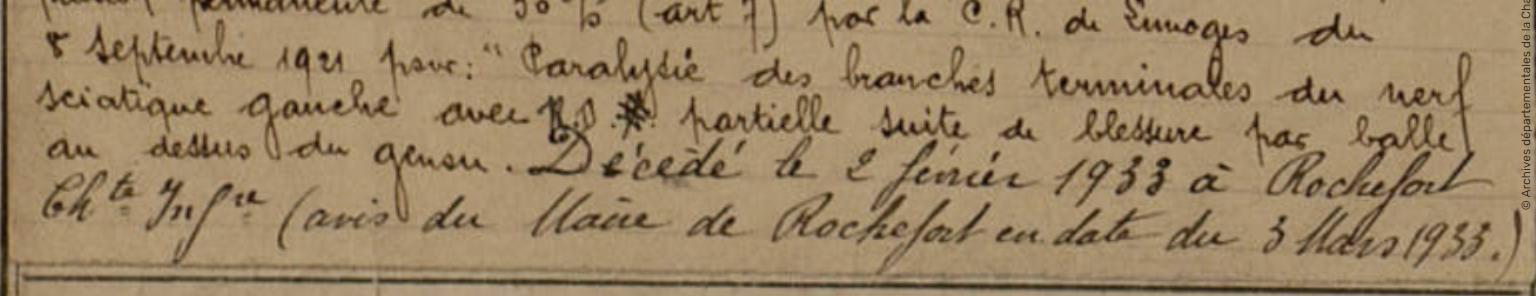 permanente de 50 % (art 7) par la C.R. de Limoges du
8 Septembre 1921 pour : " Paralysie des branches terminales du nerf
sciatique gauche avec R.D. partielle suite de blessure par balle
au dessus du genou. Décédé le 2 février 1933 à Rochefort
Chte Infre (avis du Maire de Rochefort en date du 3 Mars 1933.)
© Archives départementales de la Cha